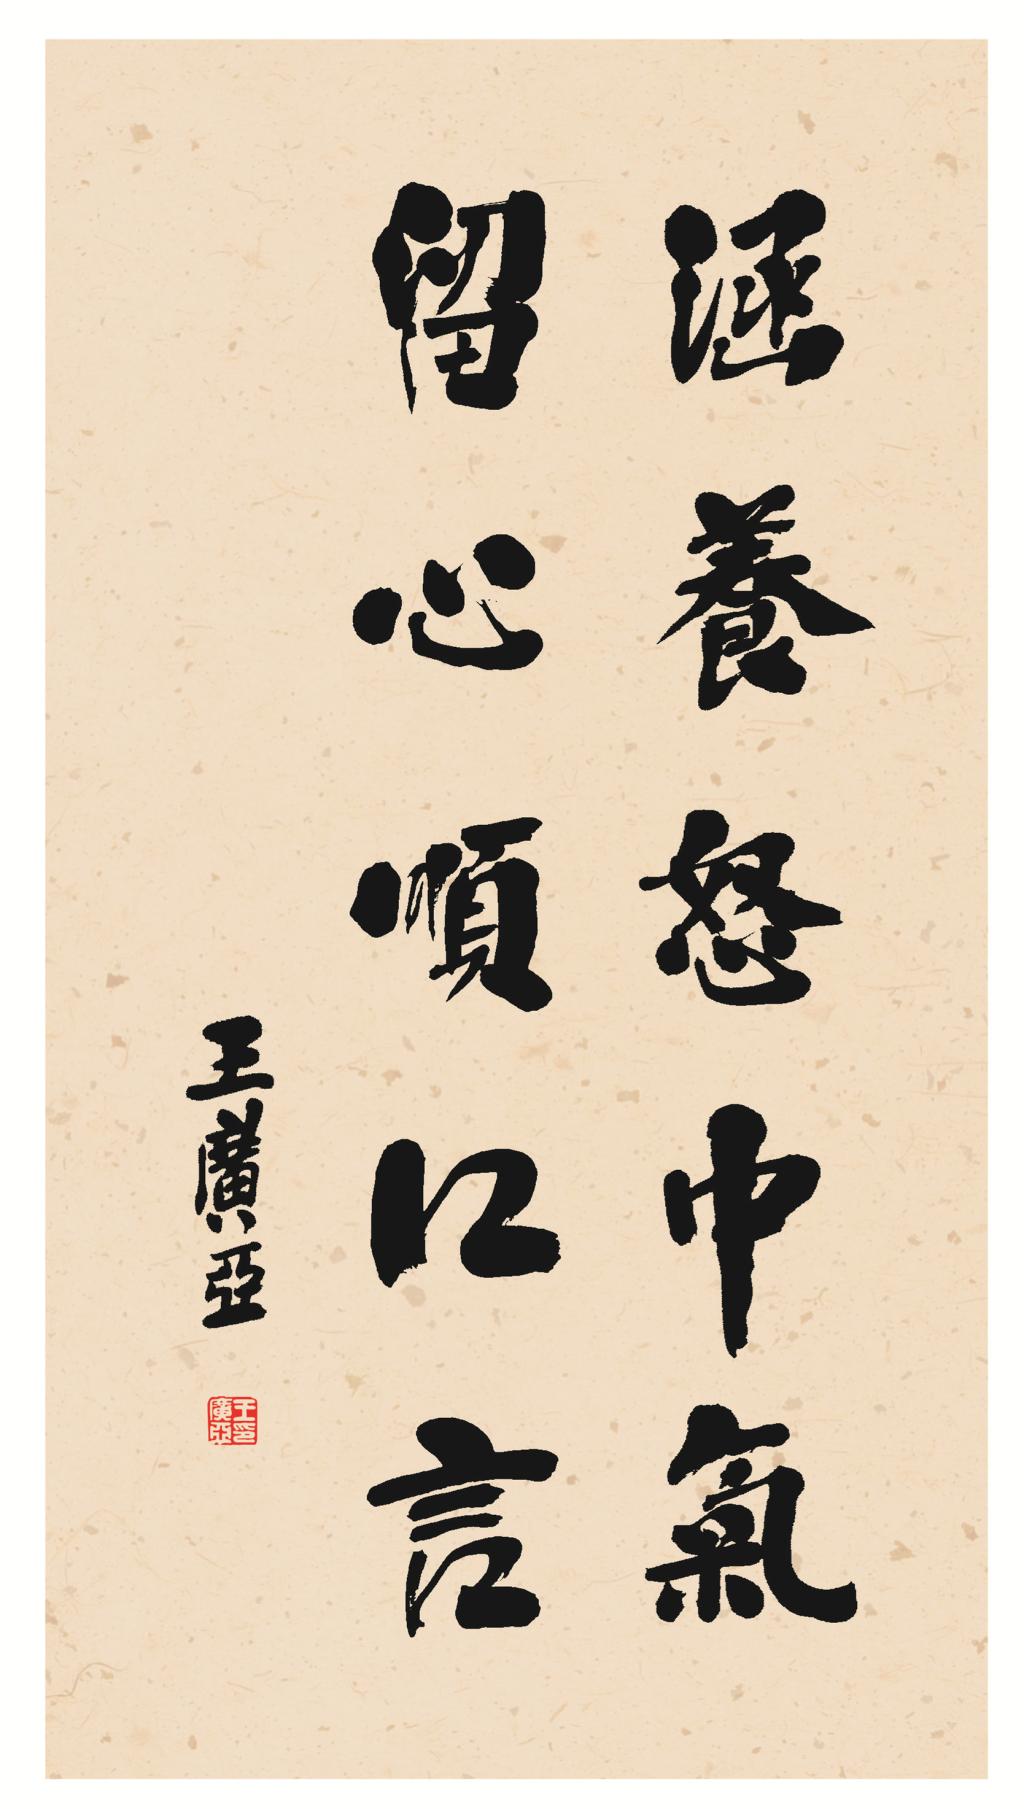 涵養怒中氣
留心順口言
王廣亞
王印
廣亞